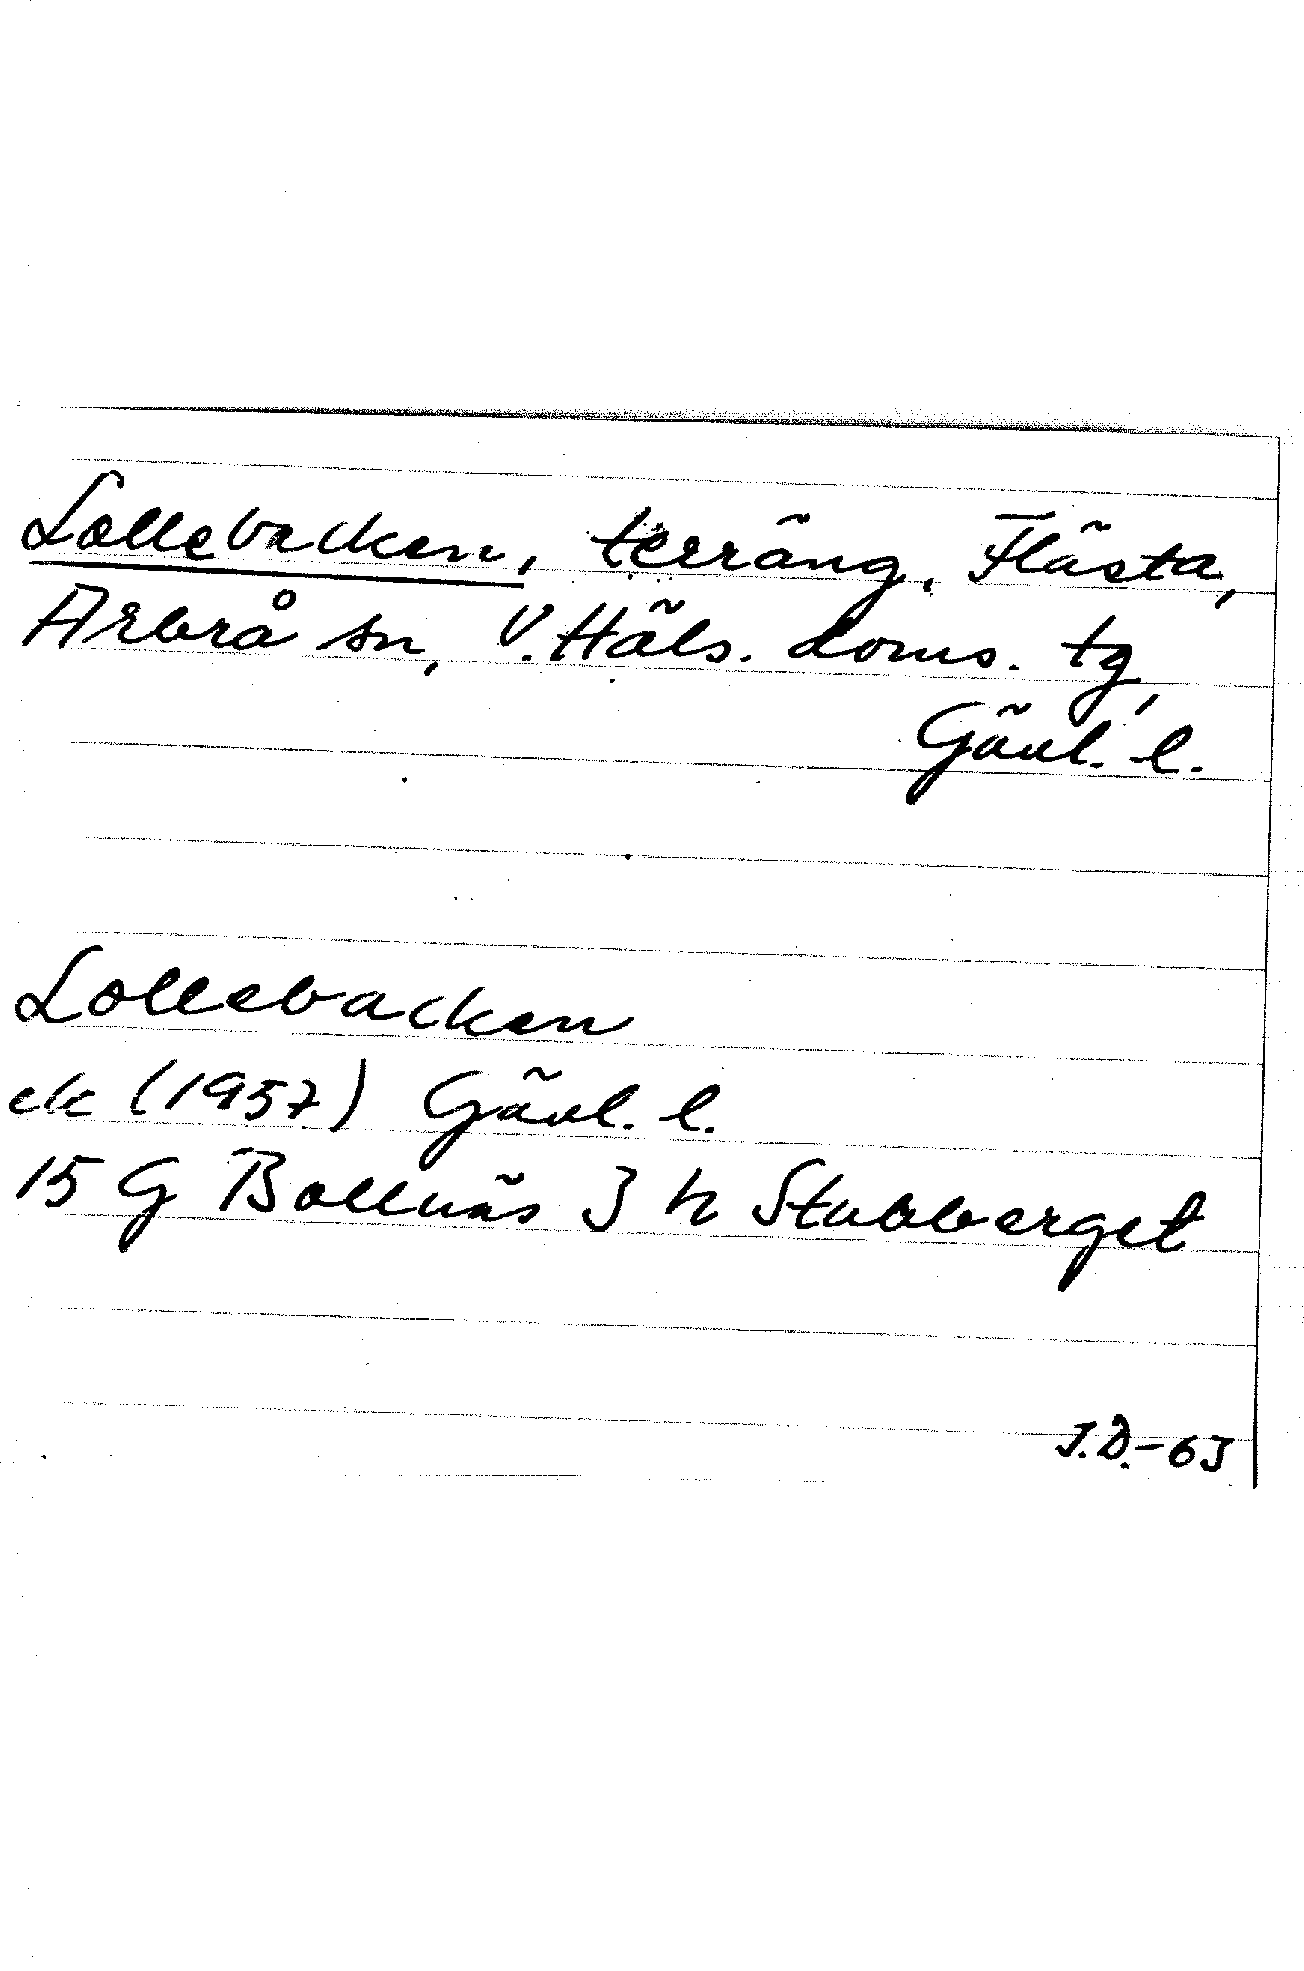 Lollebacken, terräng, Flästa,
Arbrå sn, V. Häls. doms. tg,
Gävl. l.
Lollebacken
ek (1957) Gävl. l.
15 G Bollnäs 3 h Stabberget
J.D.-63